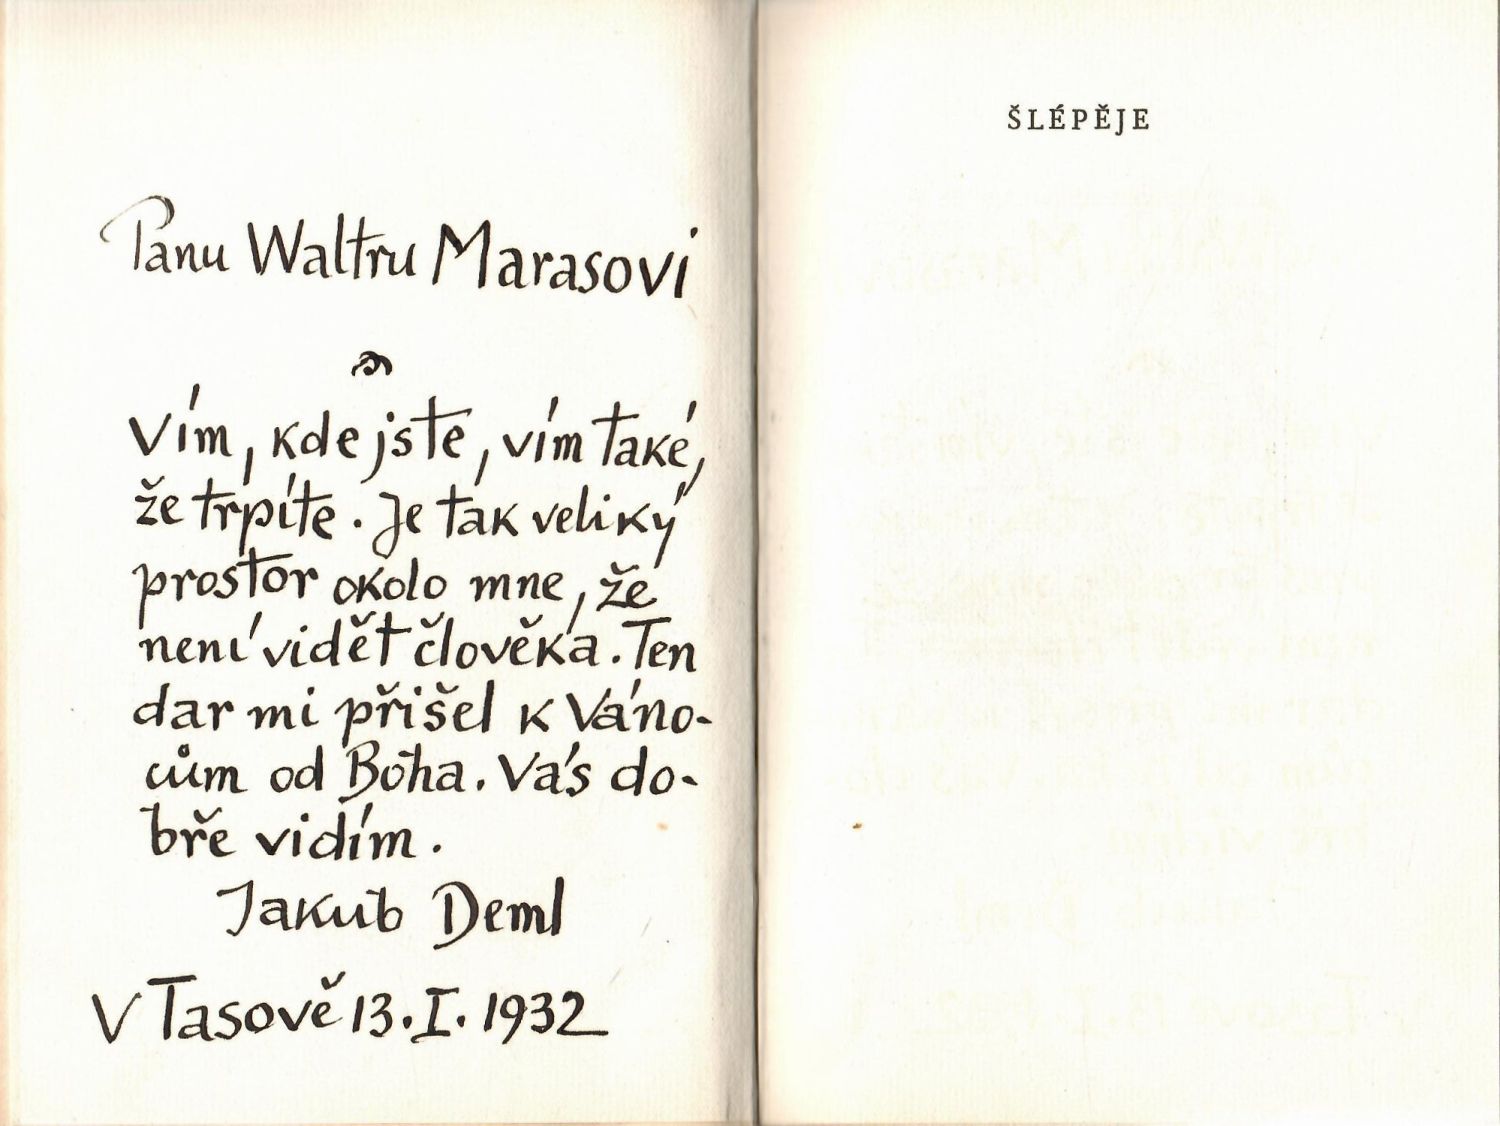 Panu Waltru Marasovi
Vím, kde jste, vím také,
že trpíte. Je tak veliký
prostor okolo mne, že
není vidět člověka. Ten
dar mi přišel k Váno-
cům od Boha. Vás do-
bře vidím.
Jakub Deml
V Tasově 13. I. 1932
ŠLÉPĚJE